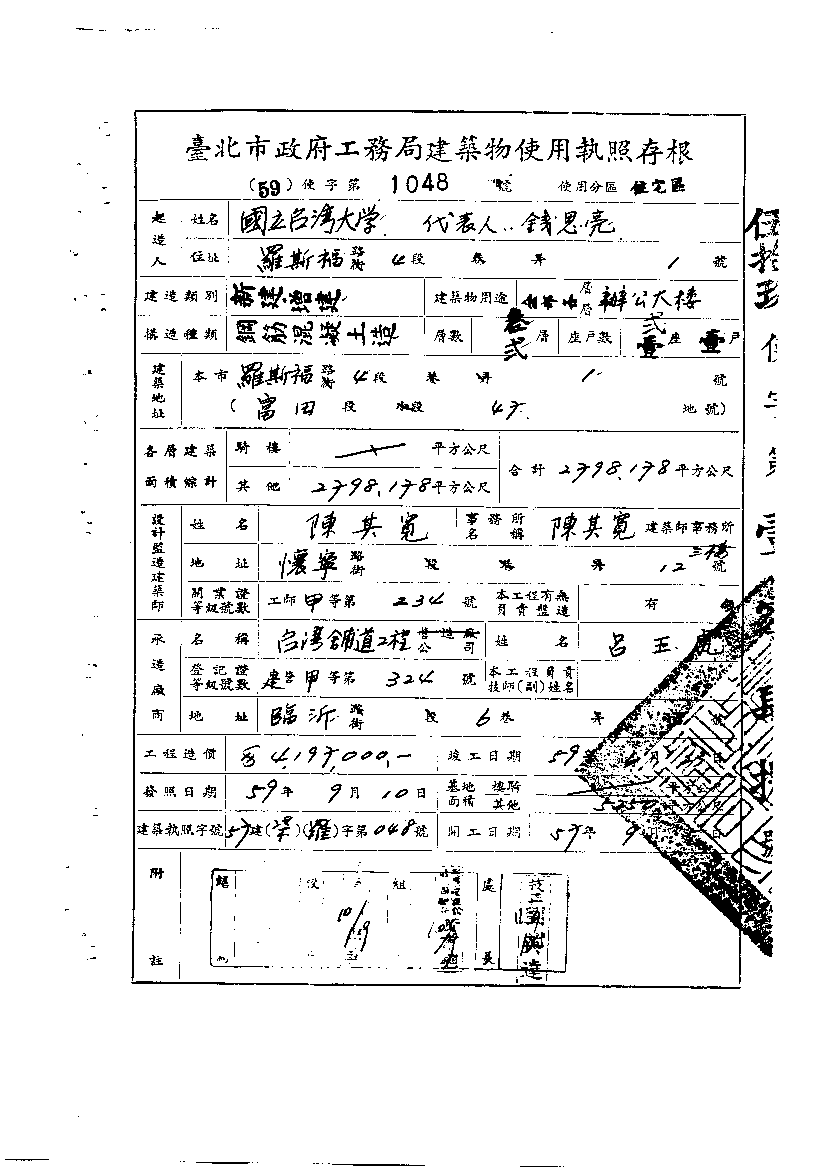 臺北市政府工務局建築物使用執照存根
(59)使字第 1048 號 使用分區 住宅區
起造人 姓名 國立台湾大学 代表人 錢思亮
住址 羅斯福路街 4段 巷 弄 1 號
建造類別 新建增建 建築物用途 層層 辦公大楼
構造種類 鋼筋混凝土造 層數 叁 弍 層 座戶數 弍 壹 座 壹 戶
建築地址 本市 羅斯福路街 4段 巷 弄 1 號
(富田 段 小段 47 地號)
各層建築面積綜計 騎樓 平方公尺
其他 2798.178平方公尺 合計 2798.178平方公尺
設計監造建築師 姓名 陳其寬 事務所名稱 陳其寬 建築師事務所
地址 懷寧路街 段 巷 弄 12 號 三楼
開業證等級號數 工師甲等第 234 號 本工程有無負責監造 有
承造廠商 名稱 台湾舖道工程 營造廠公司 姓名 呂玉虎
登記證等級號數 建營甲等第 324 號 本工程負責技師(副)姓名
地址 臨沂路街 段 6巷 弄 號
工程造價 4,197,000,- 竣工日期 59年 月 日
發照日期 59年 9月 10日 基地面積 樓騎 平方公尺
其他 平方公尺
建築執照字號 57建( )(羅)字第048號 開工日期 57年 9月 日
附註
股 組 處長 技工
10/19
達